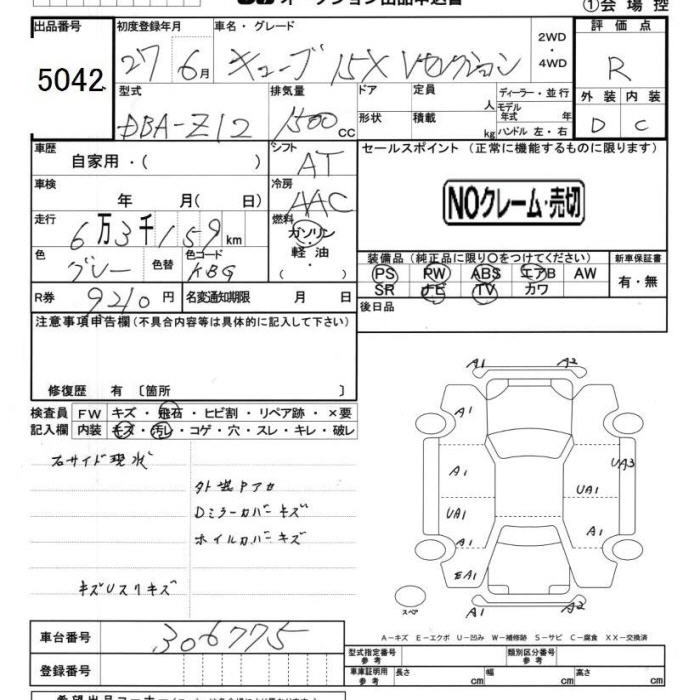 オークション出品申込書 ①会場控
出品番号 初度登録年月 車名・グレード 2WD・4WD 評価点
5042 27 6月 キューブ 15X Vセレクション R
型式 排気量 ドア 定員 人 ディーラー・並行 外装 内装
DBA-Z12 1500cc 形状 積載 kg モデル年式 年 ハンドル 左・右 D C
車歴 自家用・( ) シフト AT セールスポイント(正常に機能するものに限ります)
車検 年 月(日) 冷房 AAC NOクレーム・売切
走行 6万3千159km 燃料 ガソリン 軽油 ・( )
色 グレー 色替 色コード KBG 装備品(純正品に限り○をつけてください) 新車保証書
PS PW ABS エアB AW 有・無
SR ナビ TV カワ
R券 9210円 名変通知期限 月 日 後日品
注意事項申告欄(不具合内容等は具体的に記入して下さい)
修復歴 有〔箇所 〕
検査員 FW キズ・飛石・ヒビ割・リペア跡・×要
記入欄 内装 キズ・汚レ・コゲ・穴・スレ・キレ・破レ
右サイド現状
外装Pアカ
Dミラーカバーキズ
ホイルカバーキズ
キズUスリキズ
A1 A2
A1
A1 UA3
UA1 UA1
A1 A1
EA1
A1 A2
スペア
A-キズ E-エクボ U-凹み W-補修跡 S-サビ C-腐食 XX-交換済
車台番号 306775
型式指定番号 参考 類別区分番号 参考
登録番号 車庫証明用 参考 長さ cm 幅 cm 高さ cm